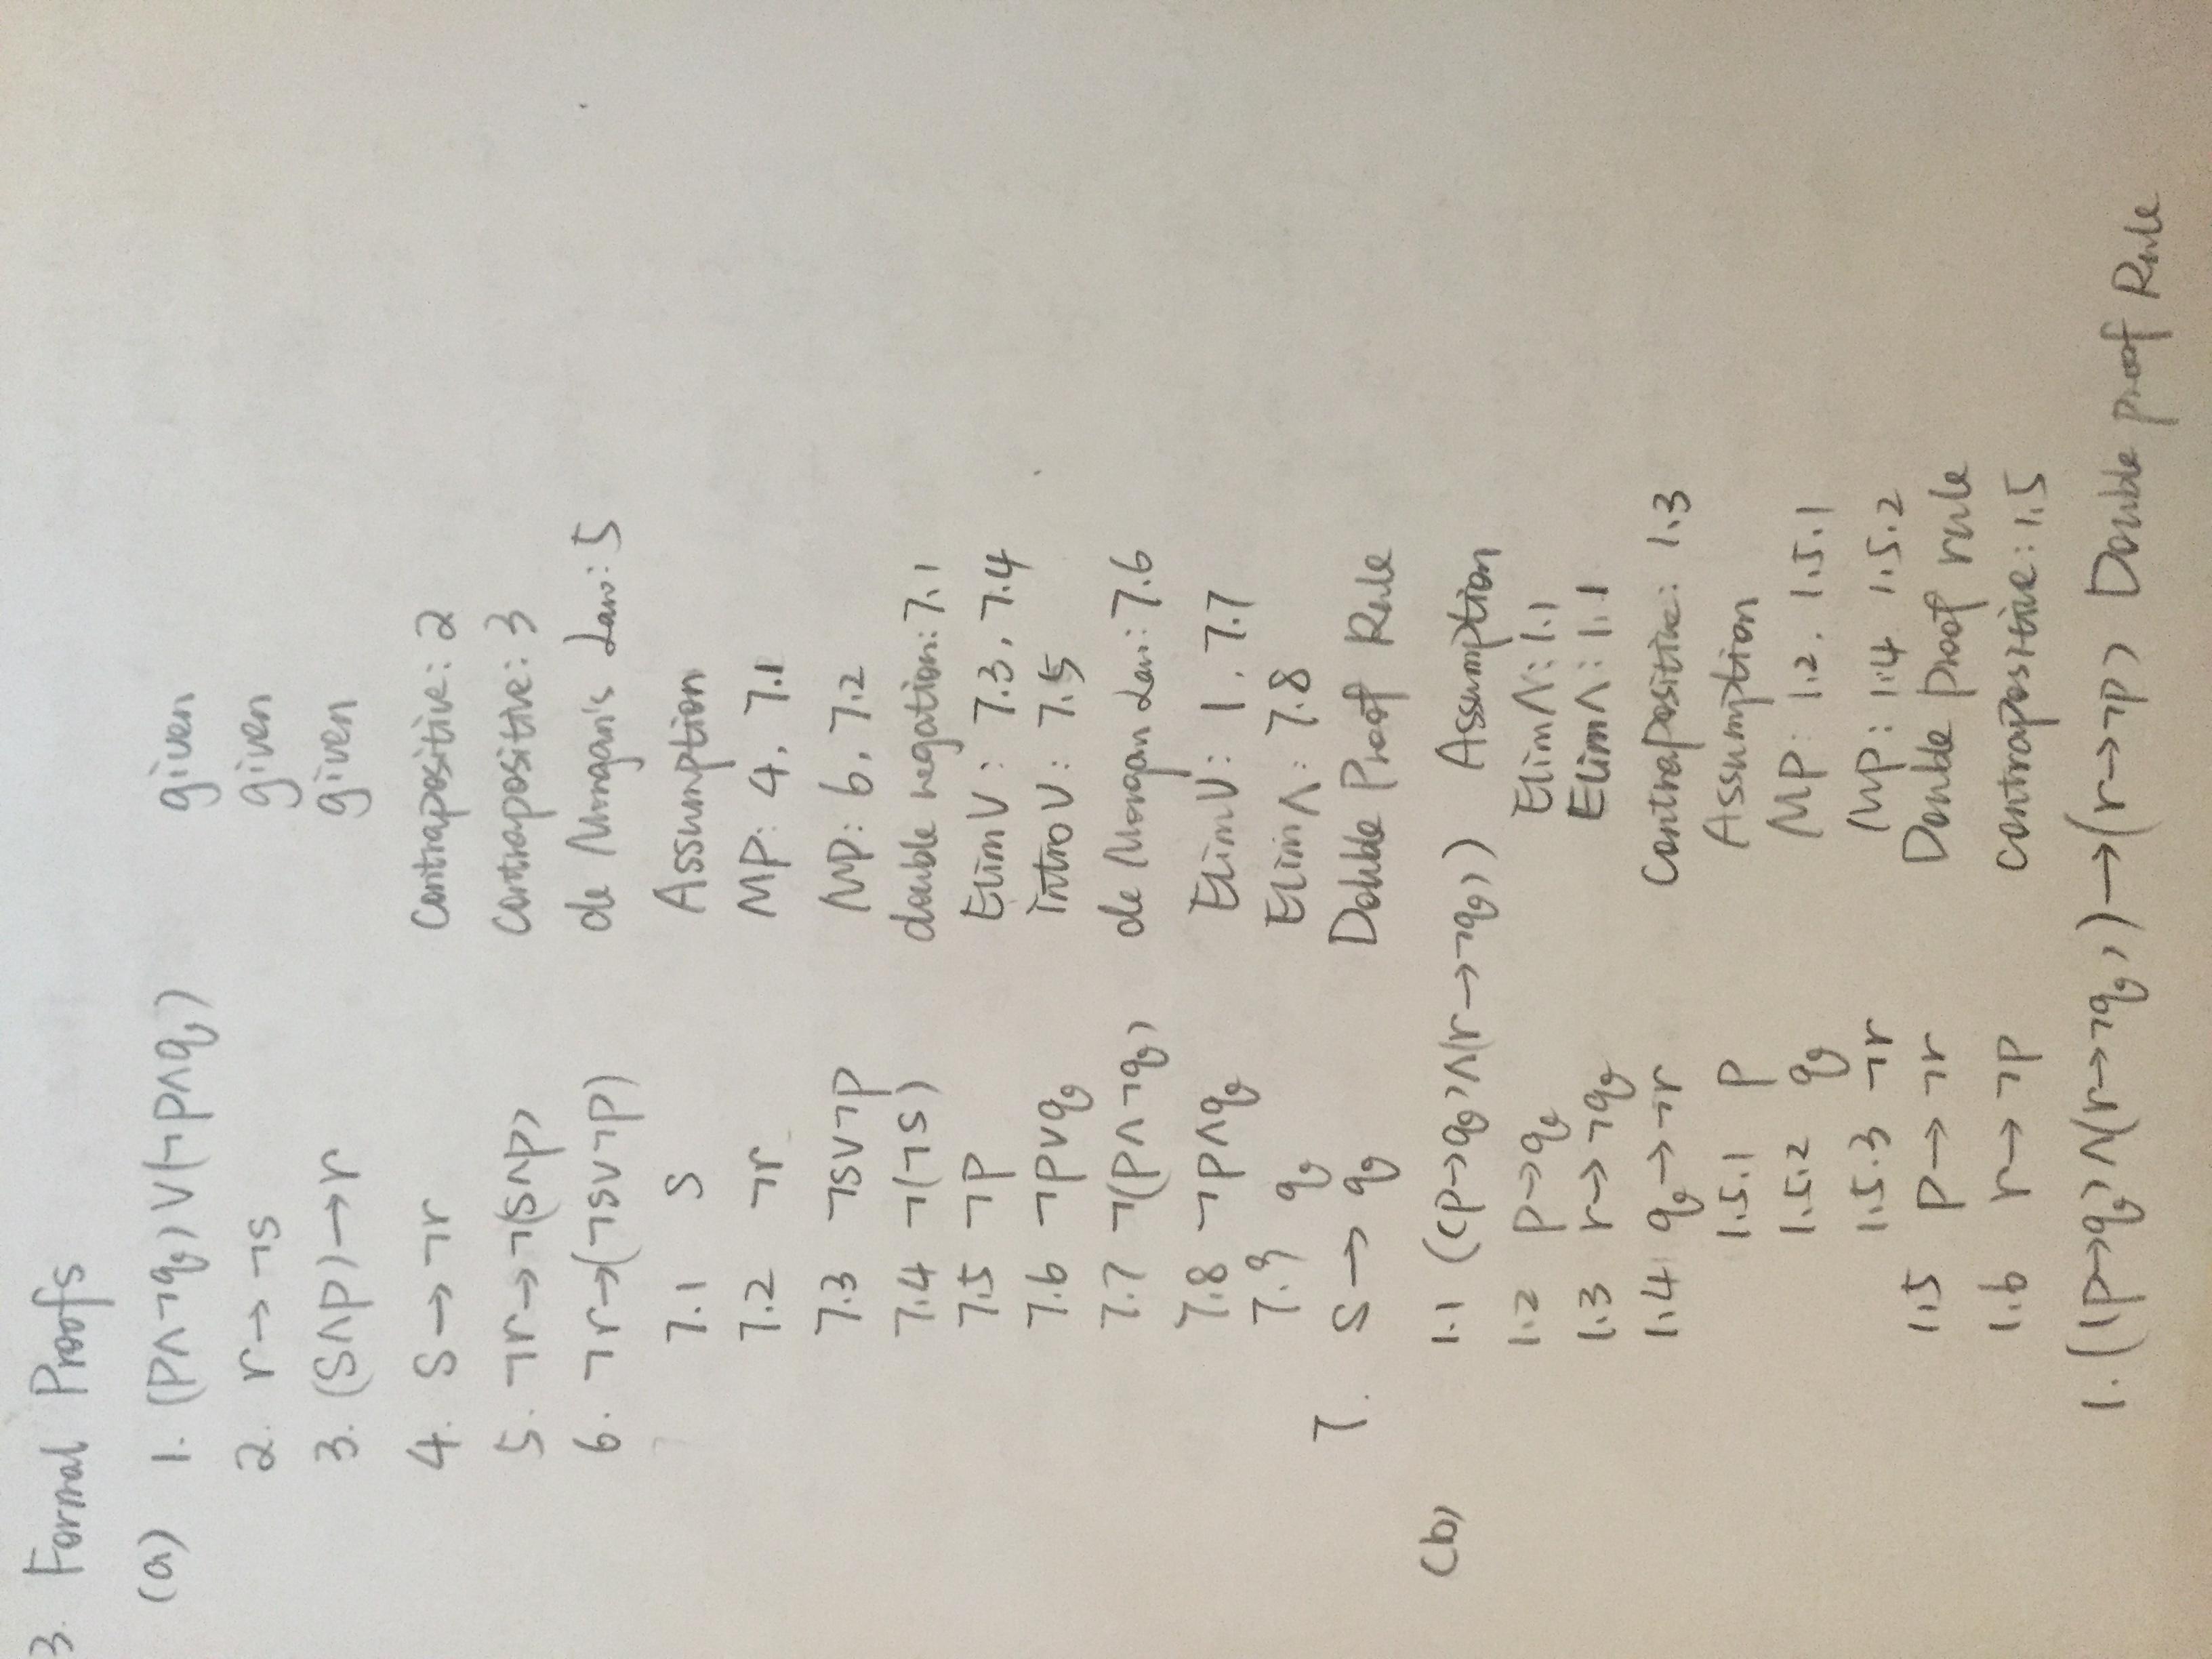 3. Formal Proofs
(a) 1. (p∧¬q)∨(¬p∧q) given
2. r→¬s given
3. (s∧p)→r given
4. s→¬r Contrapositive: 2
5. ¬r→¬(s∧p) Contrapositive: 3
6. ¬r→(¬s∨¬p) de Morgan's Law: 5
7.1 s Assumption
7.2 ¬r MP: 4, 7.1
7.3 ¬s∨¬p MP: 6, 7.2
7.4 ¬(¬s) double negation: 7.1
7.5 ¬p Elim∨: 7.3, 7.4
7.6 ¬p∨q intro∨: 7.5
7.7 ¬(p∧¬q) de Morgan Law: 7.6
7.8 ¬p∧q Elim∨: 1, 7.7
7.9 q Elim∧: 7.8
7. s→q Double Proof Rule
(b) 1.1 ((p→q)∧(r→¬q)) Assumption
1.2 p→q Elim∧: 1.1
1.3 r→¬q Elim∧: 1.1
1.4 q→¬r Contrapositive: 1.3
1.5.1 p Assumption
1.5.2 q MP: 1.2, 1.5.1
1.5.3 ¬r MP: 1.4 1.5.2
1.5 p→¬r Double proof rule
1.6 r→¬p contrapositive: 1.5
1. ((p→q)∧(r→¬q))→(r→¬p) Double proof Rule